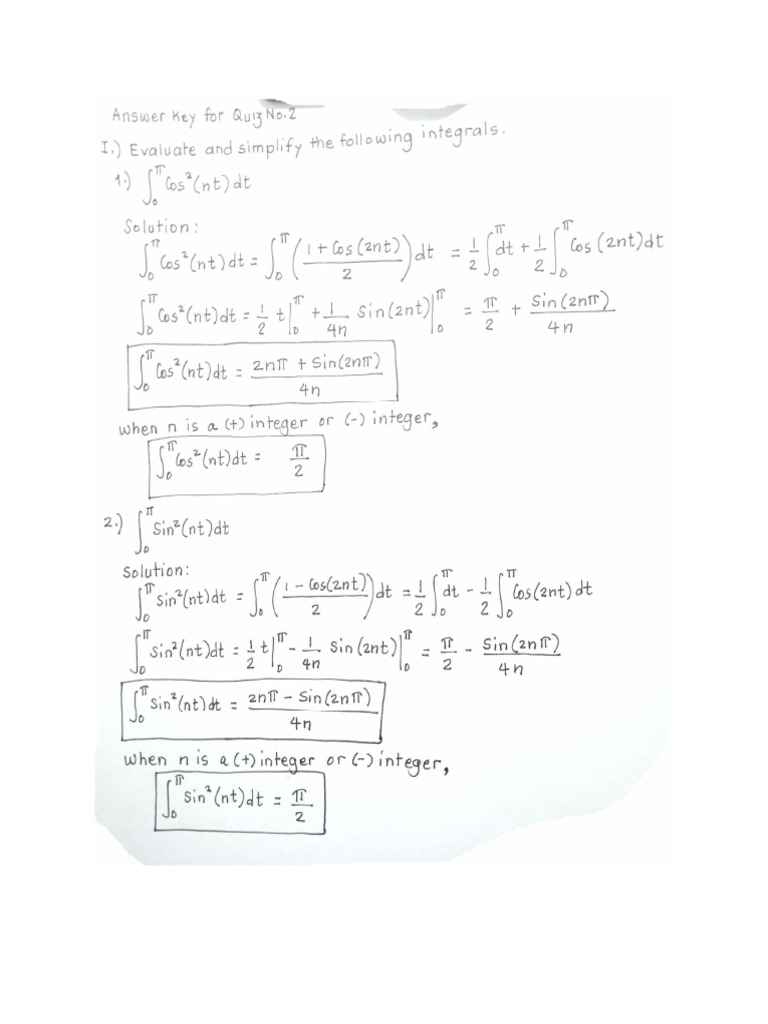 Answer Key for Quiz No.2
I.) Evaluate and simplify the following integrals.
1.) ∫₀^π Cos²(nt)dt
Solution:
∫₀^π Cos²(nt)dt = ∫₀^π ((1 + Cos(2nt))/2) dt = 1/2 ∫₀^π dt + 1/2 ∫₀^π Cos(2nt)dt
∫₀^π Cos²(nt)dt = 1/2 t|₀^π + 1/4n Sin(2nt)|₀^π = π/2 + Sin(2nπ)/4n
∫₀^π Cos²(nt)dt = (2nπ + Sin(2nπ))/4n
when n is a (+) integer or (-) integer,
∫₀^π Cos²(nt)dt = π/2
2.) ∫₀^π Sin²(nt)dt
Solution:
∫₀^π Sin²(nt)dt = ∫₀^π ((1 - Cos(2nt))/2) dt = 1/2 ∫₀^π dt - 1/2 ∫₀^π Cos(2nt)dt
∫₀^π Sin²(nt)dt = 1/2 t|₀^π - 1/4n Sin(2nt)|₀^π = π/2 - Sin(2nπ)/4n
∫₀^π Sin²(nt)dt = (2nπ - Sin(2nπ))/4n
when n is a (+) integer or (-) integer,
∫₀^π Sin²(nt)dt = π/2